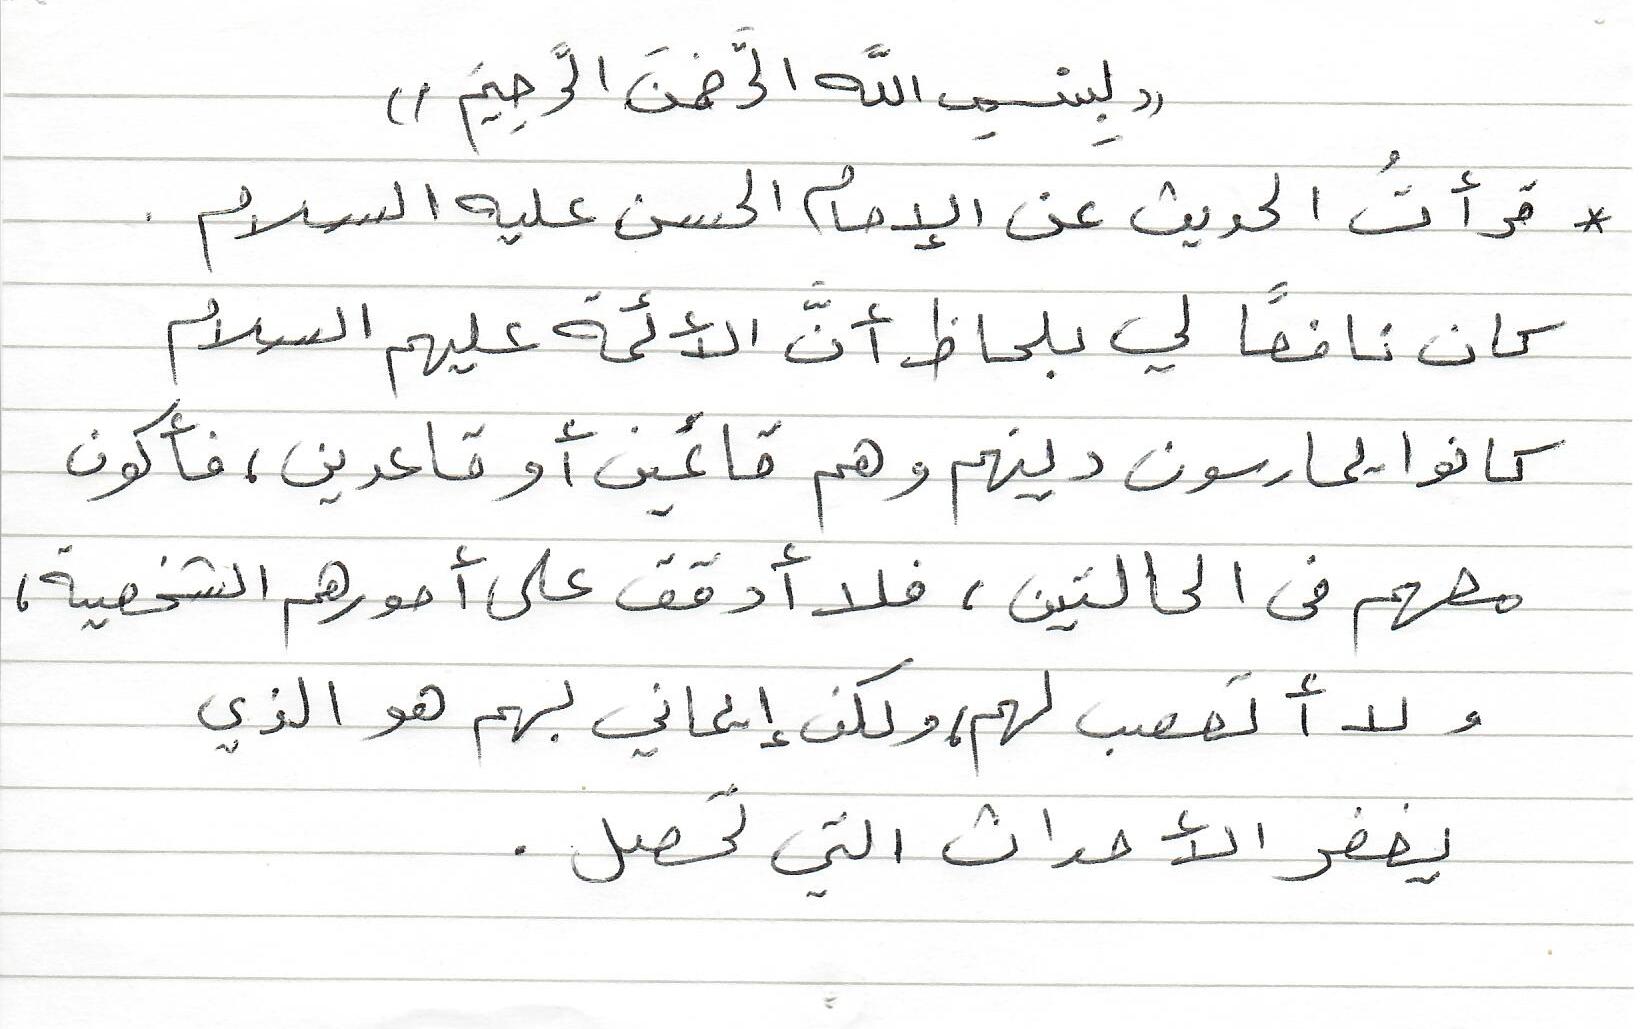 «بِسْمِ اللَّه الرَّحْمَنَ الرَّحِيَمِ»
* قرأتُ الحديث عن الإمام الحسن عليه السلام .
كان نافعًا لي بلحاظ أنَّ الأئمة عليهم السلام
كانوا يمارسون دينهم وهم قائمين أو قاعدين، فأكون
معهم في الحالتين، فلا أدقق على أمورهم الشخصية،
ولا أتعصب لهم، ولكن إيماني بهم هو الذي
يغفر الأحداث التي تحصل .